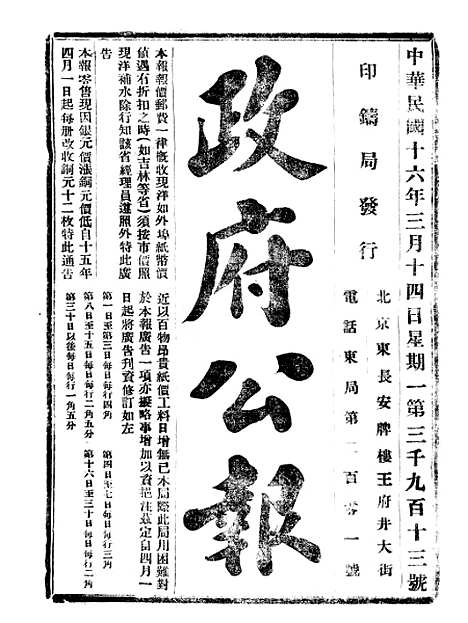 中華民國十六年三月十四日星期一第三千九百十三號
印鑄局發行
北京東長安牌樓王府井大街
電話東局第二百零一號
政府公報
本報報價郵費一律槪收現洋如外埠紙幣價
値遇有折扣之時(如吉林等省)須按市價照
現洋補水除行知該省經理員遵照外特此廣
告
本報零售現因銀元價漲銅元價低自十五年
四月一日起每册改收銅元十二枚特此通告
近以百物昂貴紙價工料日增無已本局際此局用困難對
於本報廣告一項亦擬略事增加以資挹注茲定自四月一
日起將廣告刋資修訂如左
第一日至第三日每日每行四角
第四日至七日每日每行三角
第八日至十五日每日每行二角五分
第十六日至三十日每日每行二角
第三十日以後每日每行一角五分